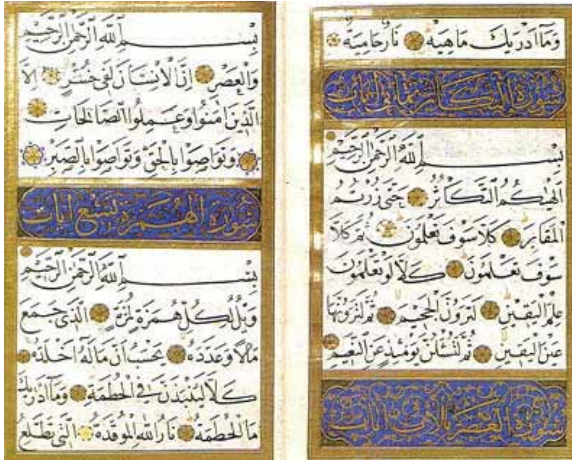 وَمَآ اَدْرٰیكَ مَاهِيَهْ نَارٌ حَامِيَةٌ
سورة التكاثر ثماني ايات
بِسْمِ اللّٰهِ الرَّحْمٰنِ الرَّحِيمِ
اَلْهٰیكُمُ التَّكَاثُرُ حَتّٰى زُرْتُمُ
الْمَقَابِرَ كَلَّا سَوْفَ تَعْلَمُونَ ثُمَّ كَلَّا
سَوْفَ تَعْلَمُونَ كَلَّا لَوْ تَعْلَمُونَ
عِلْمَ الْيَقِينِ لَتَرَوُنَّ الْجَحِيمَ ثُمَّ لَتَرَوُنَّهَا
عَيْنَ الْيَقِينِ ثُمَّ لَتُسْئَلُنَّ يَوْمَئِذٍ عَنِ النَّعِيمِ
سورة العصر ثلاث ايات
بِسْمِ اللّٰهِ الرَّحْمٰنِ الرَّحِيمِ
وَالْعَصْرِ اِنَّ الْاِنْسَانَ لَفِى خُسْرٍ اِلَّا
الَّذِينَ اٰمَنُوا وَعَمِلُوا الصَّالِحَاتِ
وَتَوَاصَوْا بِالْحَقِّ وَتَوَاصَوْا بِالصَّبْرِ
سورة الهمزة تسع ايات
بِسْمِ اللّٰهِ الرَّحْمٰنِ الرَّحِيمِ
وَيْلٌ لِكُلِّ هُمَزَةٍ لُمَزَةٍ اَلَّذِى جَمَعَ
مَالًا وَعَدَّدَهُ يَحْسَبُ اَنَّ مَالَهُ اَخْلَدَهُ
كَلَّا لَيُنْبَذَنَّ فِى الْحُطَمَةِ وَمَآ اَدْرٰیكَ
مَا الْحُطَمَةُ نَارُ اللّٰهِ الْمُوقَدَةُ اَلَّتِى تَطَّلِعُ